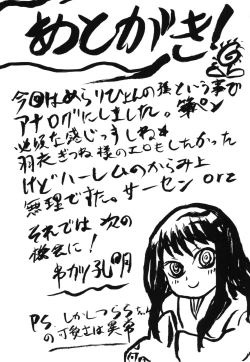 あとがき！
今回はぬらりひょんの孫という事で
アナログにしました。筆ペン
逆な感じっすしね
羽衣ぎつね様のエロもしたかった
けどハーレムのからみ上
無理ですた。サーセン orz
それでは 次の
機会に！
串カツ孔明
PS. しかしつららたん
の可愛さは異常